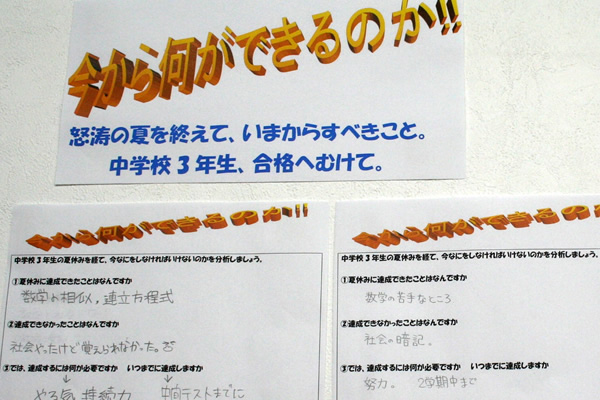 今から何ができるのか!!
怒涛の夏を終えて、いまからすべきこと。
中学校3年生、合格へむけて。
今から何ができるのか!!
中学校3年生の夏休みを経て、今なにをしなければいけないのかを分析しましょう。
①夏休みに達成できたことはなんですか
数学の相似，連立方程式
②達成できなかったことはなんですか
社会やったけど覚えられなかった。
③では、達成するには何が必要ですか いつまでに達成しますか
↓ ↓
やる気 持続力 中間テストまでに
今から何ができるのか
中学校3年生の夏休みを経て、今なにをしなければいけないのかを分析しましょう。
①夏休みに達成できたことはなんですか
数学の苦手なところ
②達成できなかったことはなんですか
社会の暗記。
③では、達成するには何が必要ですか いつまでに達成しますか
努力。 2学期中まで